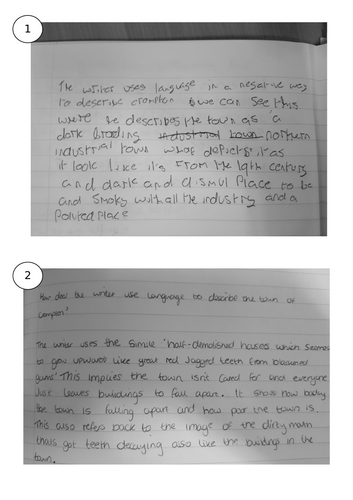 1
The writer uses language in a negative way
to describe crompton & we can see this
where he describes the town as 'a
dark brooding industrial town northern
industrial town what depicts it as
it look like it's From the 19th century
and dark and dismul Place to be
and Smoky with all the industry and a
Poluted Place
2
How does the writer use language to describe the town of
Crompton?
The writer uses the simile 'half-demolished houses which seemed
to grow upwards like great red Jagged teeth from blackened
gums' This implies the town isn't cared for and everyone
Just leaves buildings to fall apart. It shows how badly
the town is falling apart and how poor the town is.
This also refers back to the image of the dirty mouth
thats got teeth decaying also like the buildings in the
town.